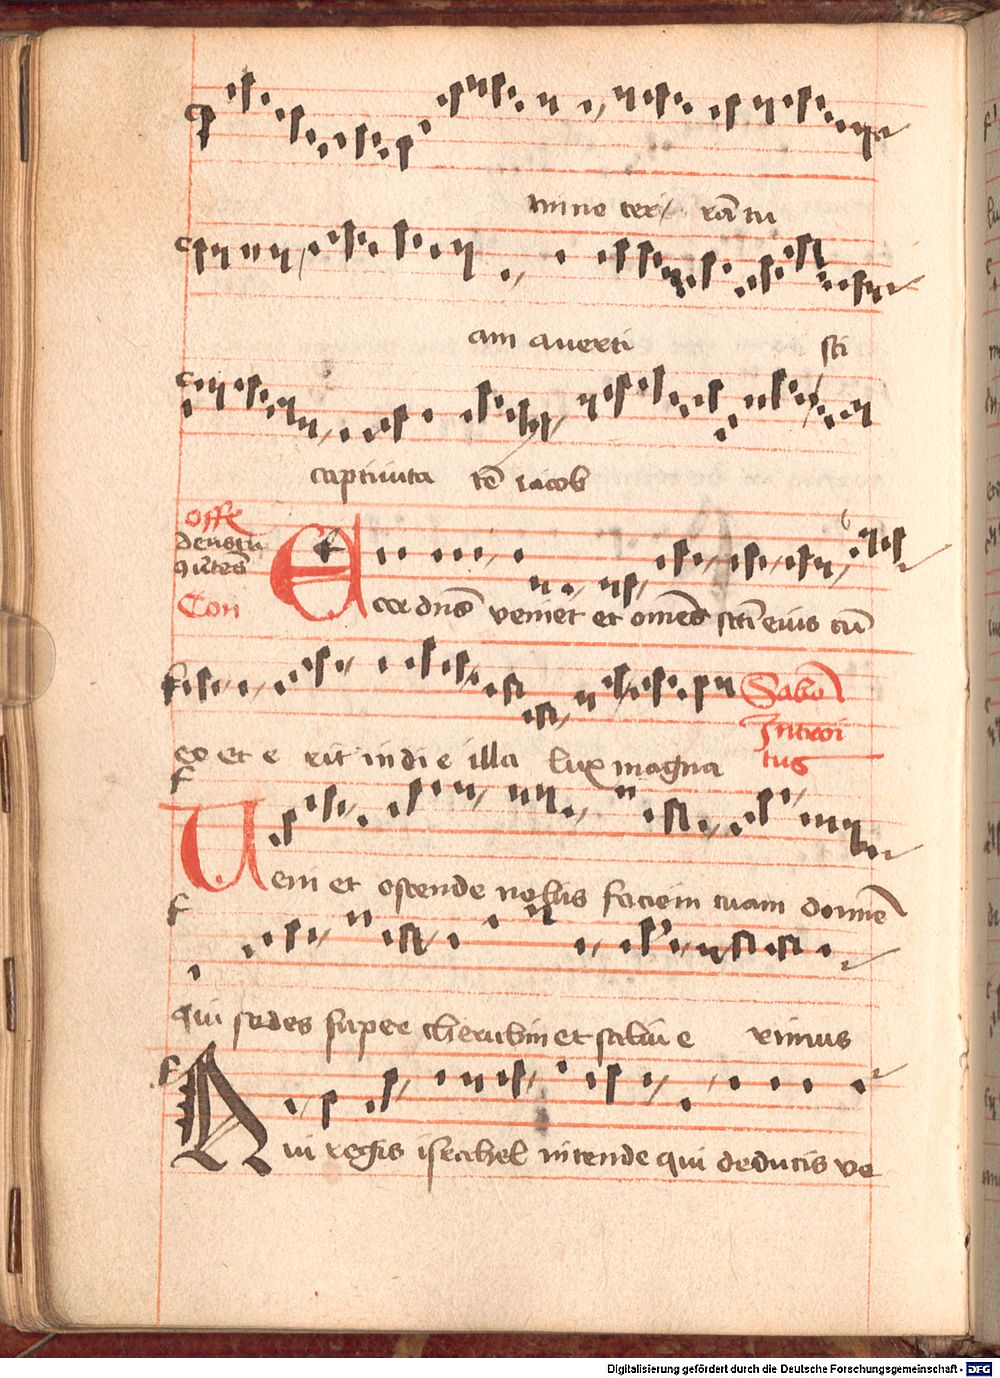 mine terra tu
am averti sti
captivita tē iacob
Offe
deus tu
Con
Ecce dn̄s veniet et om̄es sc̄ti eius cū
eo et e rit in di e illa lux magna
Sabbō
Introi
tus
Veni et ostende nobis faciem tuam domine
qui sedes super cherubin et salvi e rimus
Qui regis israhel intende qui deducis ve
Digitalisierung gefördert durch die Deutsche Forschungsgemeinschaft - DFG